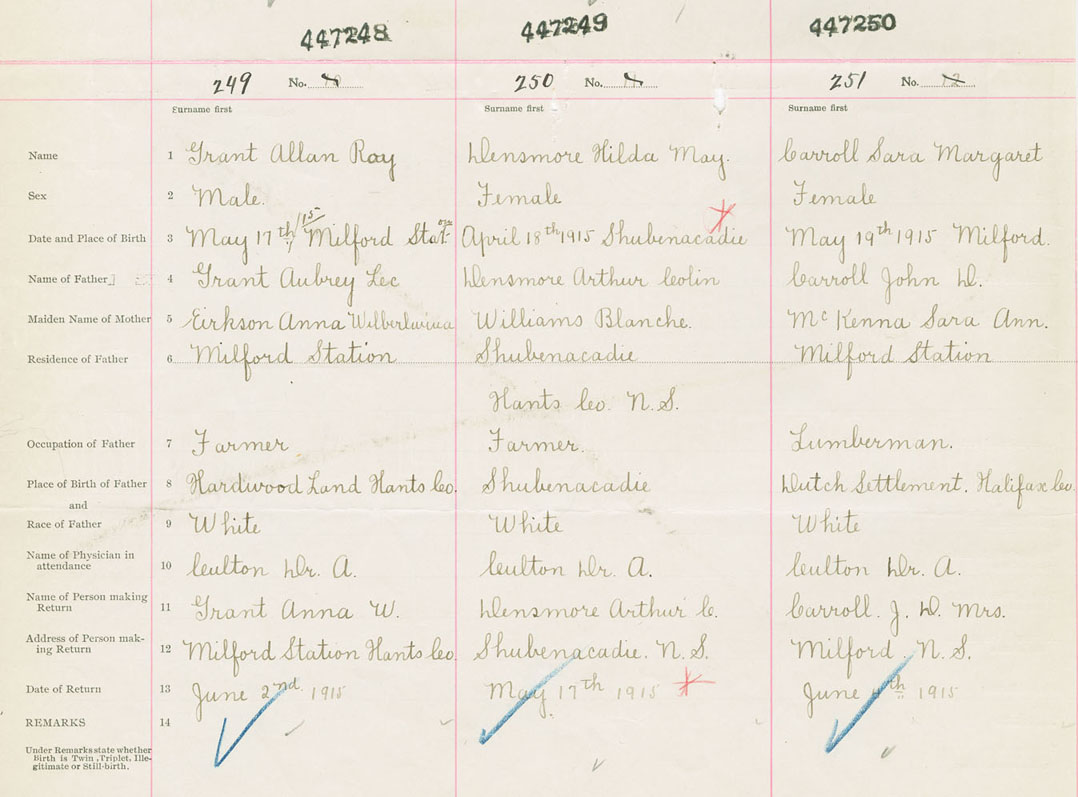 447248 447249 447250
249 No. 250 No. 251 No.
Surname first Surname first Surname first
Name 1 Grant Allan Roy Densmore Hilda May. Carroll Sara Margaret
Sex 2 Male. Female Female
Date and Place of Birth 3 May 17th/15 Milford Station April 18th 1915 Shubenacadie May 19th 1915 Milford.
Name of Father 4 Grant Aubrey Lee Densmore Arthur Colin Carroll John D.
Maiden Name of Mother 5 Eirkson Anna Williams Blanche. McKenna Sara Ann.
Residence of Father 6 Milford Station Shubenacadie Milford Station
Hants Co. N.S.
Occupation of Father 7 Farmer Farmer. Lumberman.
Place of Birth of Father 8 Hardwood Land Hants Co. Shubenacadie Dutch Settlement. Halifax Co.
and
Race of Father 9 White White White
Name of Physician in
attendance 10 Culton Dr. A. Culton Dr. A. Culton Dr. A.
Name of Person making
Return 11 Grant Anna W. Densmore Arthur C. Carroll. J. D. Mrs.
Address of Person mak-
ing Return 12 Milford Station Hants Co. Shubenacadie. N.S. Milford. N.S.
Date of Return 13 June 2nd 1915 May 17th 1915 June 4th 1915
REMARKS 14
Under Remarks state whether
Birth is Twin, Triplet, Ille-
gitimate or Still-birth.